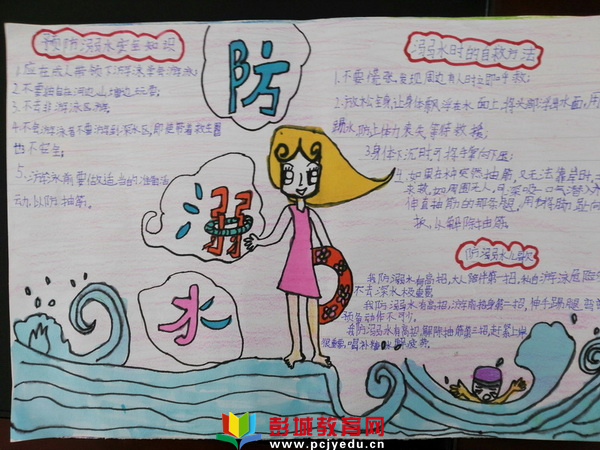 预防溺水安全知识
1.应在成人带领下游泳学会游泳;
2.不要独自在河边、山塘边玩耍;
3.不去非游泳区游泳;
4.不会游泳者,不要游到深水区,即使带着救生圈
也不安全;
5.游泳前要做适当的准备活
动,以防抽筋。
防
溺
水
溺水时的自救方法
1.不要慌张,发现周围有人时立即呼救;
2.放松全身,让身体飘浮在水面上,将头部浮出水面,用
踢水,防止体力丧失,等待救援;
3.身体下沉时,可将手掌向下压;
4.如果在水中突然抽筋,又无法靠岸时,立
求救。如周围无人,可深吸一口气潜入水
伸直抽筋的那条腿,用手将脚趾向
扳,以解除抽筋。
防溺水儿歌
我防溺水有高招,大人陪伴第一招,私自游泳危险
不去深水
我防溺水有高招,游前热身第二招,伸手踢腿
预备动作不可少。
我防溺水有高招,解除抽筋第三招,赶紧上岸
喝补糖水解疲劳。
彭城教育网
www.pcjyedu.cn